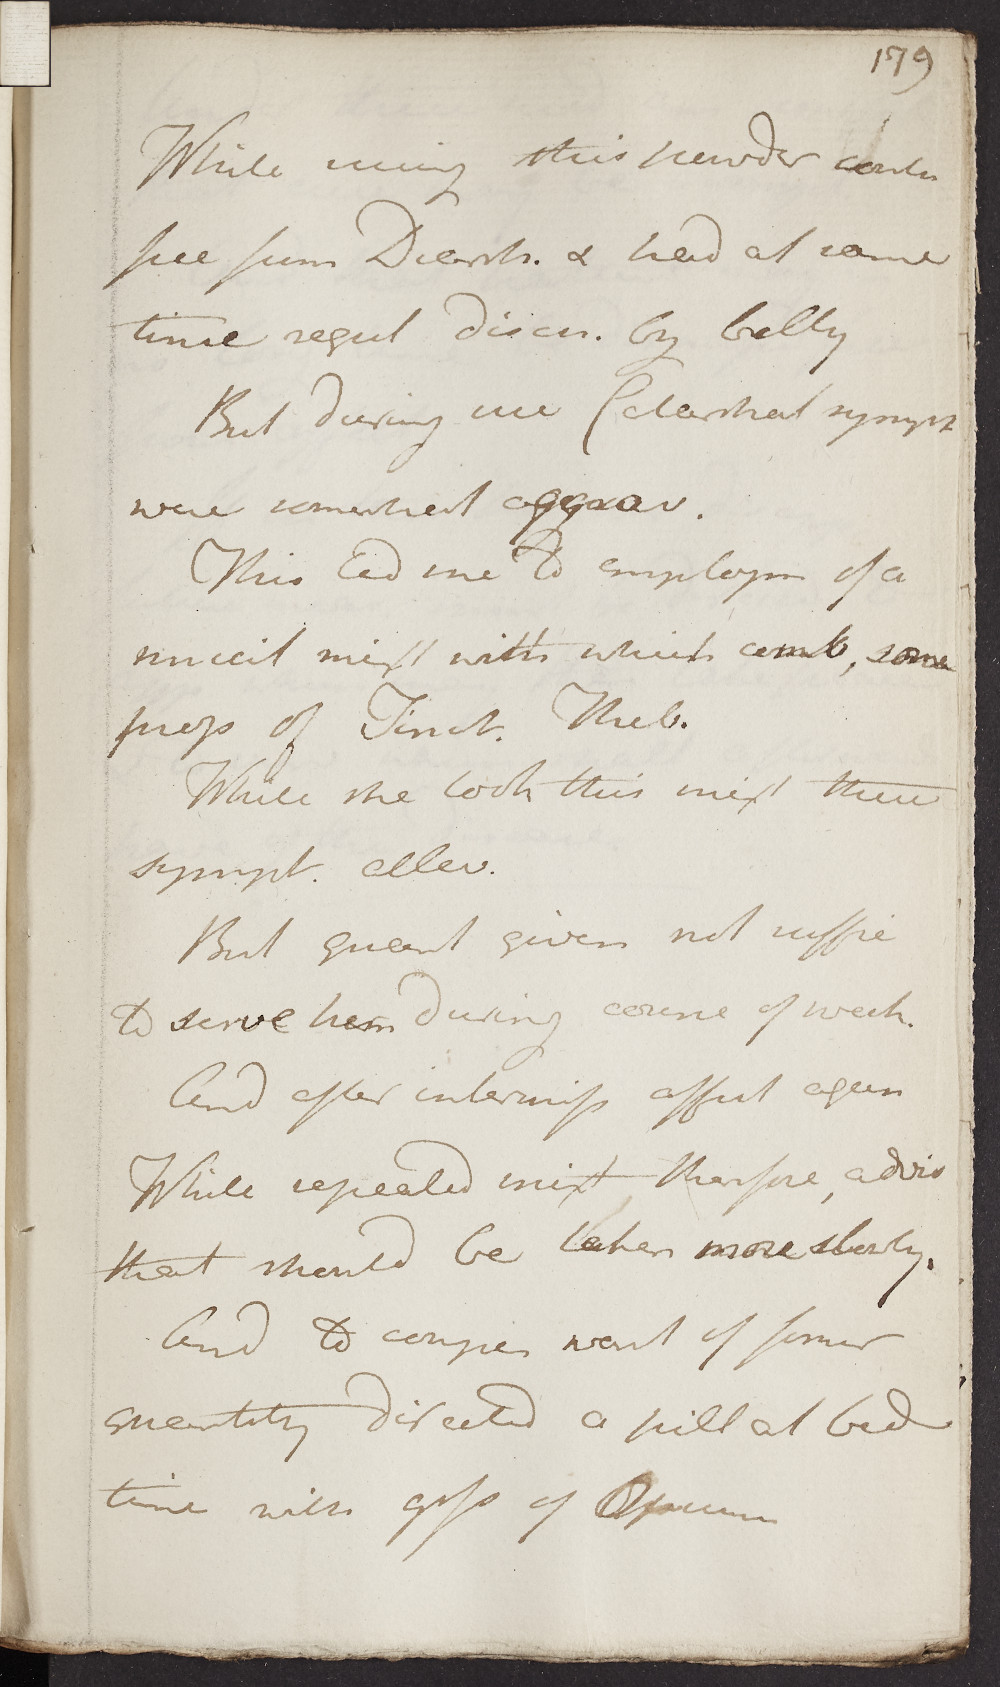 179
While using this powder contin
free from Diarrh. & had at same
time regul disch. by belly
But during use Catarrhal sympt
were somewhat aggrav.
This led me to employm of a
mucil mixt with which comb, some
prop of Tinct. Theb.
While she took this mixt these
sympt. allev.
But quant given not suffic
to serve her during course of week.
And after intermiss affect again
While repeated mixt therefore, advis
that should be taken more slowly.
And to compen want of former
quantity directed a pill at bed
time with grss of Opium